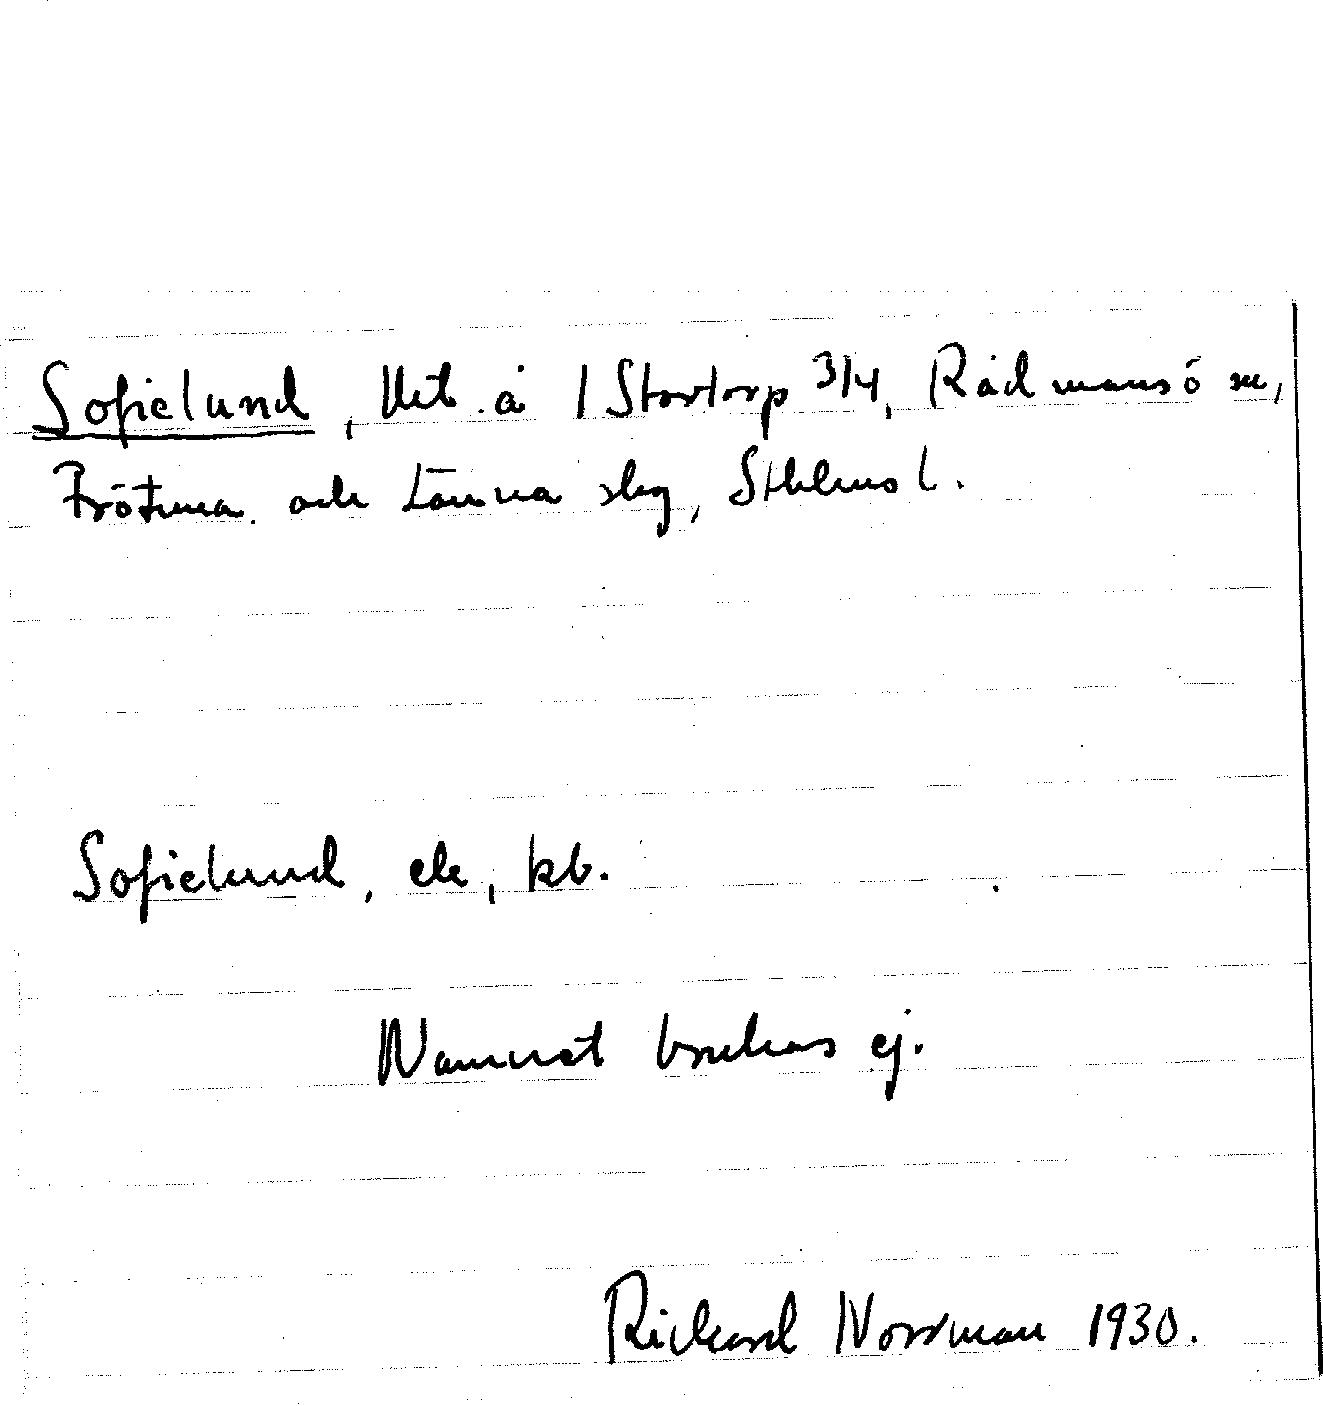 Sofielund, lht. å 1 Stortorp 3/4, Rådmansö sn,
Frötuna och Länna skg, Sthlms l.
Sofielund, ek, kb.
Namnet brukas ej.
Rickard Norrman 1930.